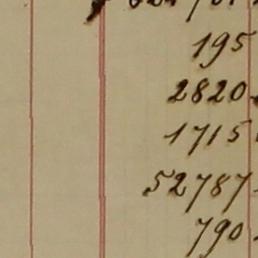 195
2820
1715
52787
790